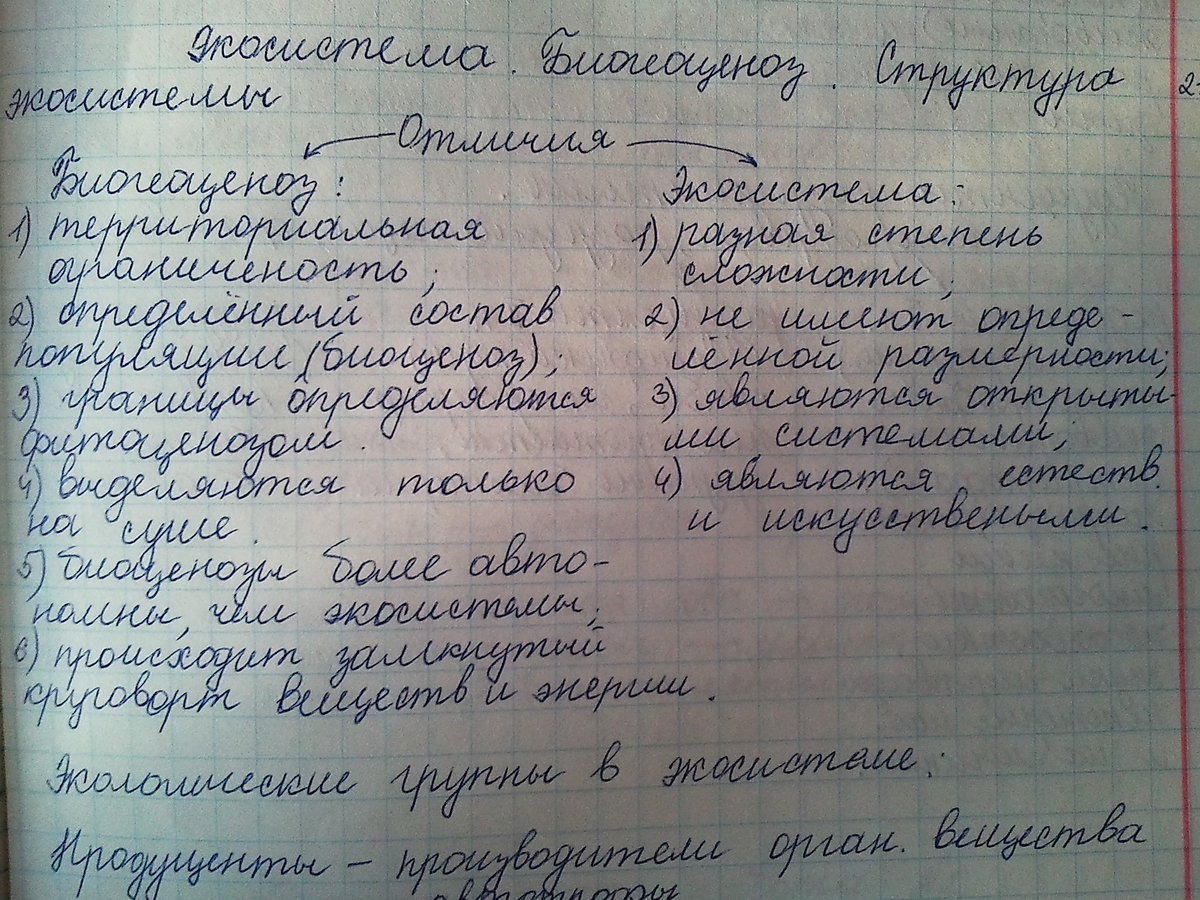 Экосистема. Биогеоценоз. Структура
экосистемы
Отличия
Биогеоценоз:
1) территориальная
ограниченость;
2) определённый состав
популяции (биоценоз);
3) границы определяются
фитоценозом.
4) выделяются только
на суше.
5) биоценозы более авто-
номны, чем экосистемы;
6) происходит замкнутый
круговорт веществ и энергии.
Экосистема:
1) разная степень
сложности;
2) не имеют опреде-
лённой размерности;
3) являются открыты-
ми системами;
4) являются естеств.
и искусствеными.
Экологические группы в экосистеме:
Продуценты – производители орган. вещества
автотрофы